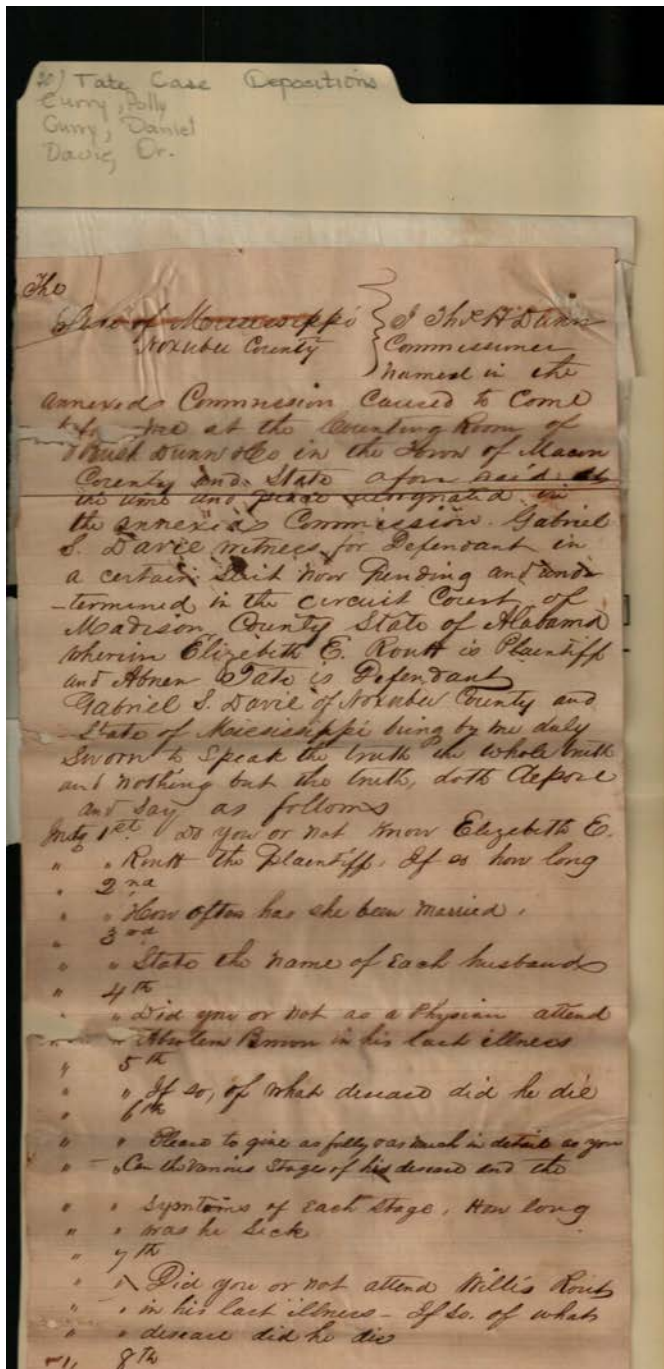 20) Tate Case Depositions
Curry, Polly
Curry, Daniel
Davie, Dr.
The
State of Mississippi
Noxubee County
I Thos H Dunn
Commissioner
named in the
annexed Commission caused to come
before me at the Counting Room of
Dunn & Co in the Town of Macon
County and State afore said at
the time and place designated in
the annexed Commission. Gabriel
S. Davie witness for Defendant in
a certain Suit now Pending and unde
-termined in the Circuit Court of
Madison County State of Alabama
wherein Elizabeth E. Routt is Plaintiff
and Abner Tate is Defendant
Gabriel S. Davie of Noxubee County and
State of Mississippi being by me duly
Sworn to Speak the truth the whole truth
and nothing but the truth, doth depose
and Say as follows
Intg 1st Do you or not know Elizabeth E.
" " Routt the Plaintiff. If so how long
" 2nd
" " How often has she been married.
" 3rd
" " State the name of Each husband
" 4th
" Did you or not as a Physician attend
" Absolem Brown in his last illness
" 5th
" " If so, of what disease did he die
" 6th
" " Please to give as fully & as much in detail as you
" " Can the various Stages of his disease and the
" " Symtoms of Each Stage. How long
" " was he Sick
" 7th
" " Did you or not attend Willis Routt
" " in his last illness - If So. of what
" " disease did he die
" 8th